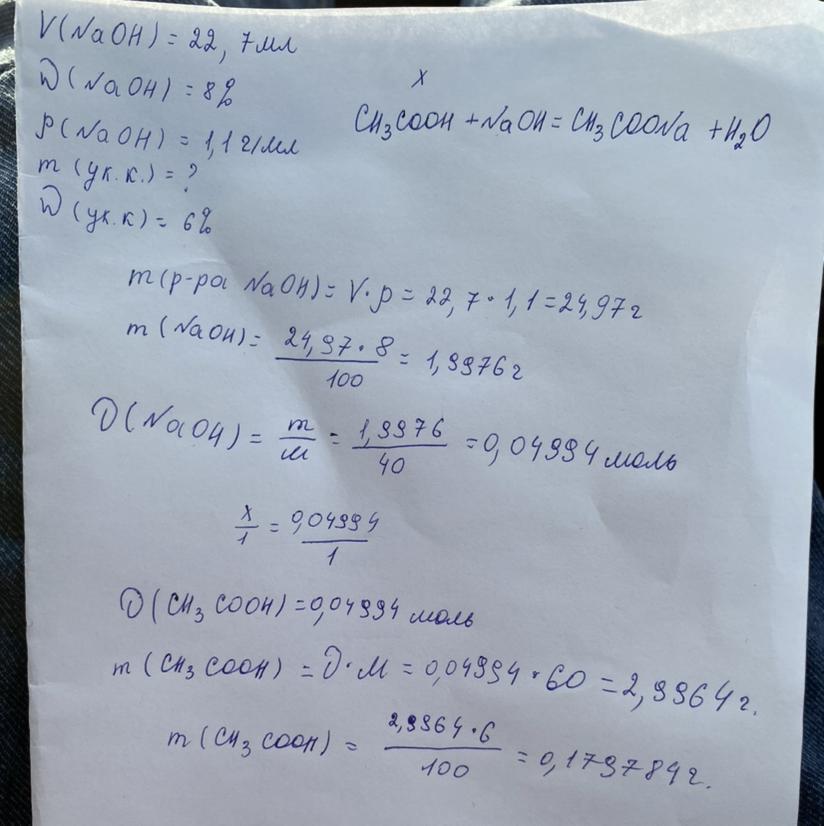 V(NaOH) = 22,7мл
W(NaOH) = 8%
ρ(NaOH) = 1,1г/мл
m(ук.к.) = ?
W(ук.к) = 6%
x
CH₃COOH + NaOH = CH₃COONa + H₂O
m(р-ра NaOH) = V·ρ = 22,7·1,1 = 24,97г
m(NaOH) = 24,97·8/100 = 1,9976г
ν(NaOH) = m/M = 1,9976/40 = 0,04994 моль
x/1 = 0,04994/1
ν(CH₃COOH) = 0,04994 моль
m(CH₃COOH) = ν·M = 0,04994·60 = 2,9964г.
m(CH₃COOH) = 2,9964·6/100 = 0,179784г.